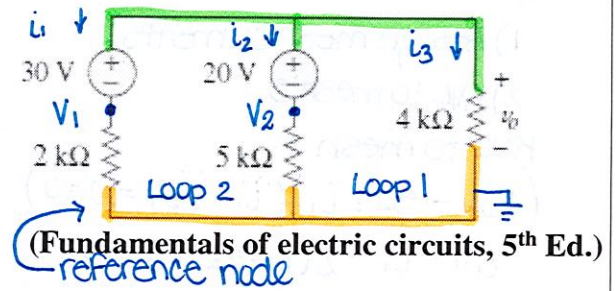 i₁ i₂ i₃
30 V + − 20 V + − +
V₁ V₂ 4 kΩ v₀
2 kΩ 5 kΩ −
LOOP 2 LOOP 1
(Fundamentals of electric circuits, 5th Ed.)
reference node